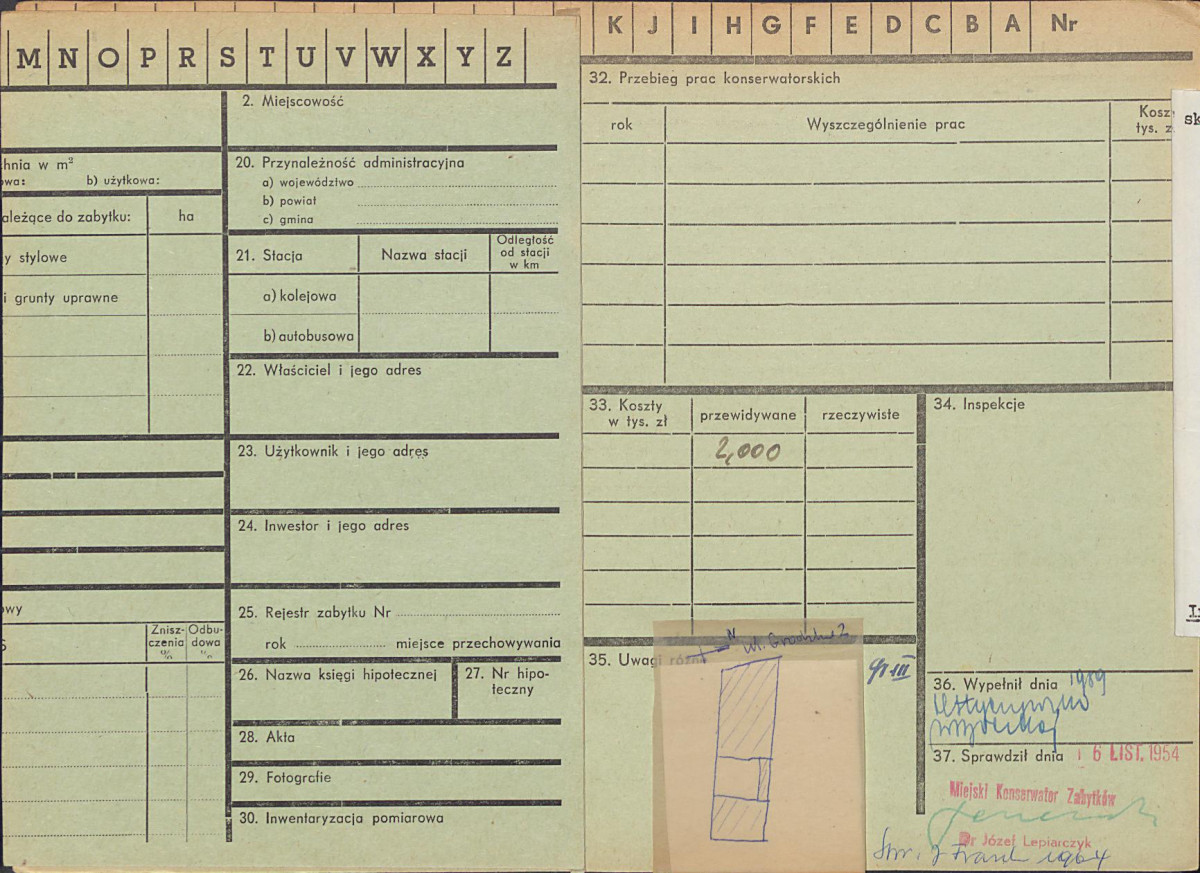 M N O P R S T U V W X Y Z
K J I H G F E D C B A Nr
2. Miejscowość
hnia w m²
owa: b) użytkowa:
20. Przynależność administracyjna
a) województwo
b) powiat
c) gmina
ależące do zabytku: ha
y stylowe
i grunty uprawne
21. Stacja
Nazwa stacji
Odległość
od stacji
w km
a) kolejowa
b) autobusowa
22. Właściciel i jego adres
23. Użytkownik i jego adres
24. Inwestor i jego adres
25. Rejestr zabytku Nr
rok miejsce przechowywania
owy
Znisz-
czenia
%
Odbu-
dowa
%
26. Nazwa księgi hipotecznej
27. Nr hipo-
teczny
28. Akta
29. Fotografie
30. Inwentaryzacja pomiarowa
32. Przebieg prac konserwatorskich
rok
Wyszczególnienie prac
Koszt
tys. z
sk
33. Koszty
w tys. zł
przewidywane
rzeczywiste
2,000
34. Inspekcje
35. Uwagi różne
N
ul. Grodzka 2
gr III
36. Wypełnił dnia 1959
37. Sprawdził dnia 16 LIST. 1954
Miejski Konserwator Zabytków
Dr Józef Lepiarczyk
1964